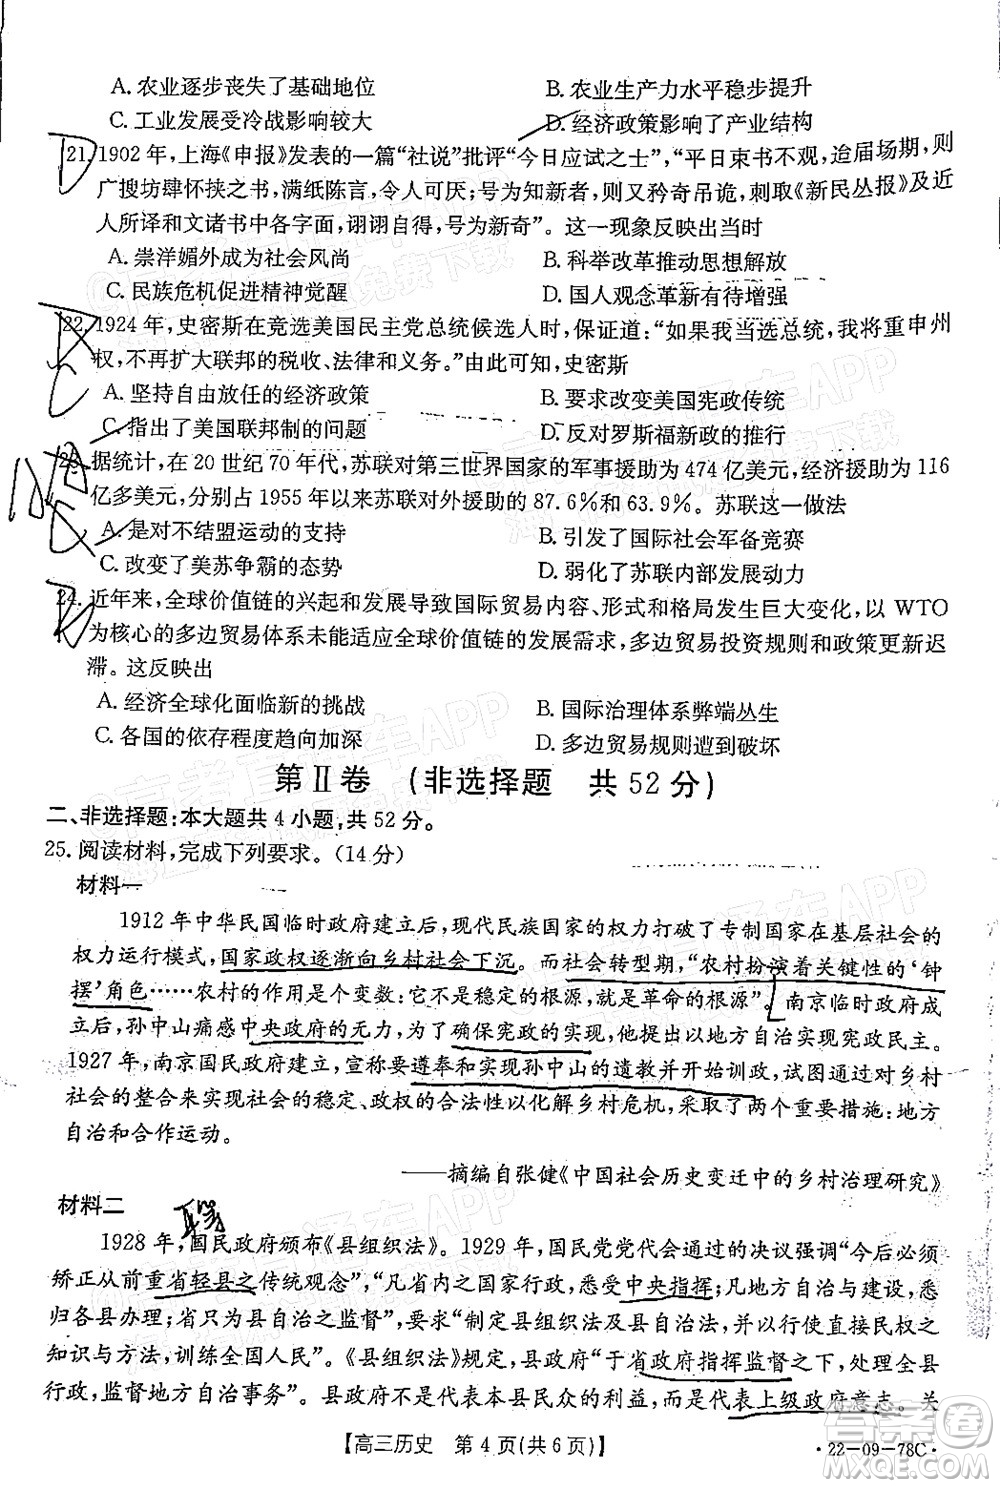 A. 农业逐步丧失了基础地位 B. 农业生产力水平稳步提升
C. 工业发展受冷战影响较大 D. 经济政策影响了产业结构
21. 1902 年，上海《申报》发表的一篇“社说”批评“今日应试之士”，“平日束书不观，迨届场期，则
广搜坊肆怀挟之书，满纸陈言，令人可厌；号为知新者，又矜奇吊诡，刺取《新民丛报》及近
人所译和文诸书中各字面，诩诩自得，号为新奇”。这一现象反映出当时
A. 崇洋媚外成为社会风尚 B. 科举改革推动思想解放
C. 民族危机促进精神觉醒 D. 国人观念革新有待增强
22. 1924 年，史密斯在竞选美国民主党总统候选人时，保证道：“如果我当选总统，我将重申州
权，不再扩大联邦的税收、法律和义务。”由此可知，史密斯
A. 坚持自由放任的经济政策 B. 要求改变美国宪政传统
C. 指出了美国联邦制的问题 D. 反对罗斯福新政的推行
23. 据统计，在 20 世纪 70 年代，苏联对第三世界国家的军事援助为 474 亿美元，经济援助为 116
亿多美元，分别占 1955 年以来苏联对外援助的 87.6%和 63.9%。苏联这一做法
A. 是对不结盟运动的支持 B. 引发了国际社会军备竞赛
C. 改变了美苏争霸的态势 D. 弱化了苏联内部发展动力
24. 近年来，全球价值链的兴起和发展导致国际贸易内容、形式和格局发生巨大变化，以 WTO
为核心的多边贸易体系未能适应全球价值链的发展，多边贸易投资规则和政策更新迟
滞。这反映出
A. 经济全球化面临新的挑战 B. 国际治理体系弊端丛生
C. 各国的依存程度趋向加深 D. 多边贸易规则遭到破坏
第Ⅱ卷 （非选择题 共 52 分）
二、非选择题：本大题共 4 小题，共 52 分。
25. 阅读材料，完成下列要求。（14 分）
材料一
1912 年中华民国临时政府建立后，现代民族国家的权力打破了专制国家在基层社会的
权力运行模式，国家政权逐渐向乡村社会下沉。而社会转型期，“农村扮演着关键性的‘钟
摆’角色……农村的作用是个变数：它不是稳定的根源，就是革命的根源”。南京临时政府成
立后，孙中山痛感中央政府的无力，为了确保宪政的实现，他提出以地方自治实现宪政民主。
1927 年，南京国民政府建立，宣称要遵奉和实现孙中山的遗教并开始训政，试图以对乡村
社会的整合来实现社会的稳定、政权的合法性以化解乡村危机，采取了两个重要措施：地方
自治和合作运动。
——摘编自张健《中国社会历史变迁中的乡村治理研究》
材料二
1928 年，国民政府颁布《县组织法》。1929 年，国民党党代会通过的决议强调“今后必须
矫正从前重省轻县之传统观念”，“凡省内之国家行政，悉受中央指挥；凡地方自治与建设，悉
归各县办理；省只为县自治之监督”，“制定县组织法及县自治法，并以教授人民使用政权之
知识与方法，训练全国人民”。《县组织法》规定，县政府“于省政府指挥监督之下，处理全县
行政，监督地方自治事务”。县政府不是代表本县民众的利益，而是代表上级政府意志。关
【高三历史 第 4 页（共 6 页）】
·22-09-78C·
答案圈